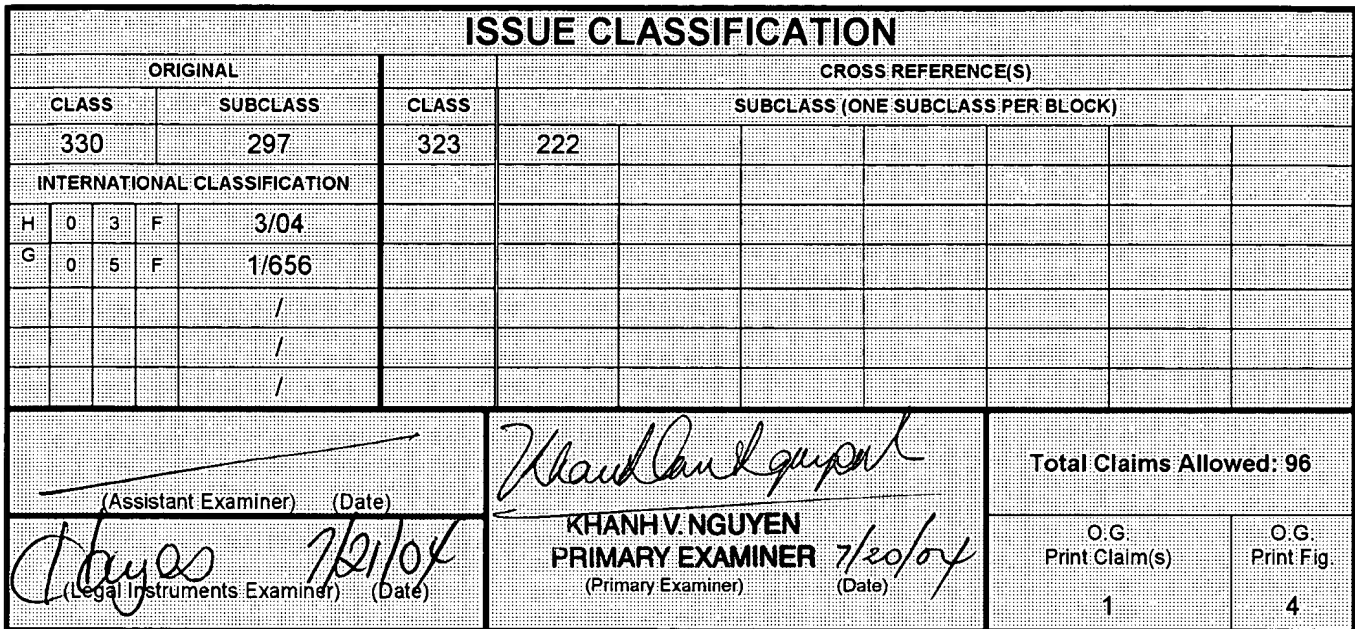 ISSUE CLASSIFICATION
ORIGINAL CROSS REFERENCE(S)
CLASS SUBCLASS CLASS SUBCLASS (ONE SUBCLASS PER BLOCK)
330 297 323 222
INTERNATIONAL CLASSIFICATION
H 0 3 F 3/04
G 0 5 F 1/656
/
/
/
(Assistant Examiner) (Date)
Hayes 7/21/04
(Legal Instruments Examiner) (Date)
Khanh Van Nguyen
KHANH V. NGUYEN
PRIMARY EXAMINER 7/20/04
(Primary Examiner) (Date)
Total Claims Allowed: 96
O.G.
Print Claim(s)
1
O.G.
Print Fig.
4